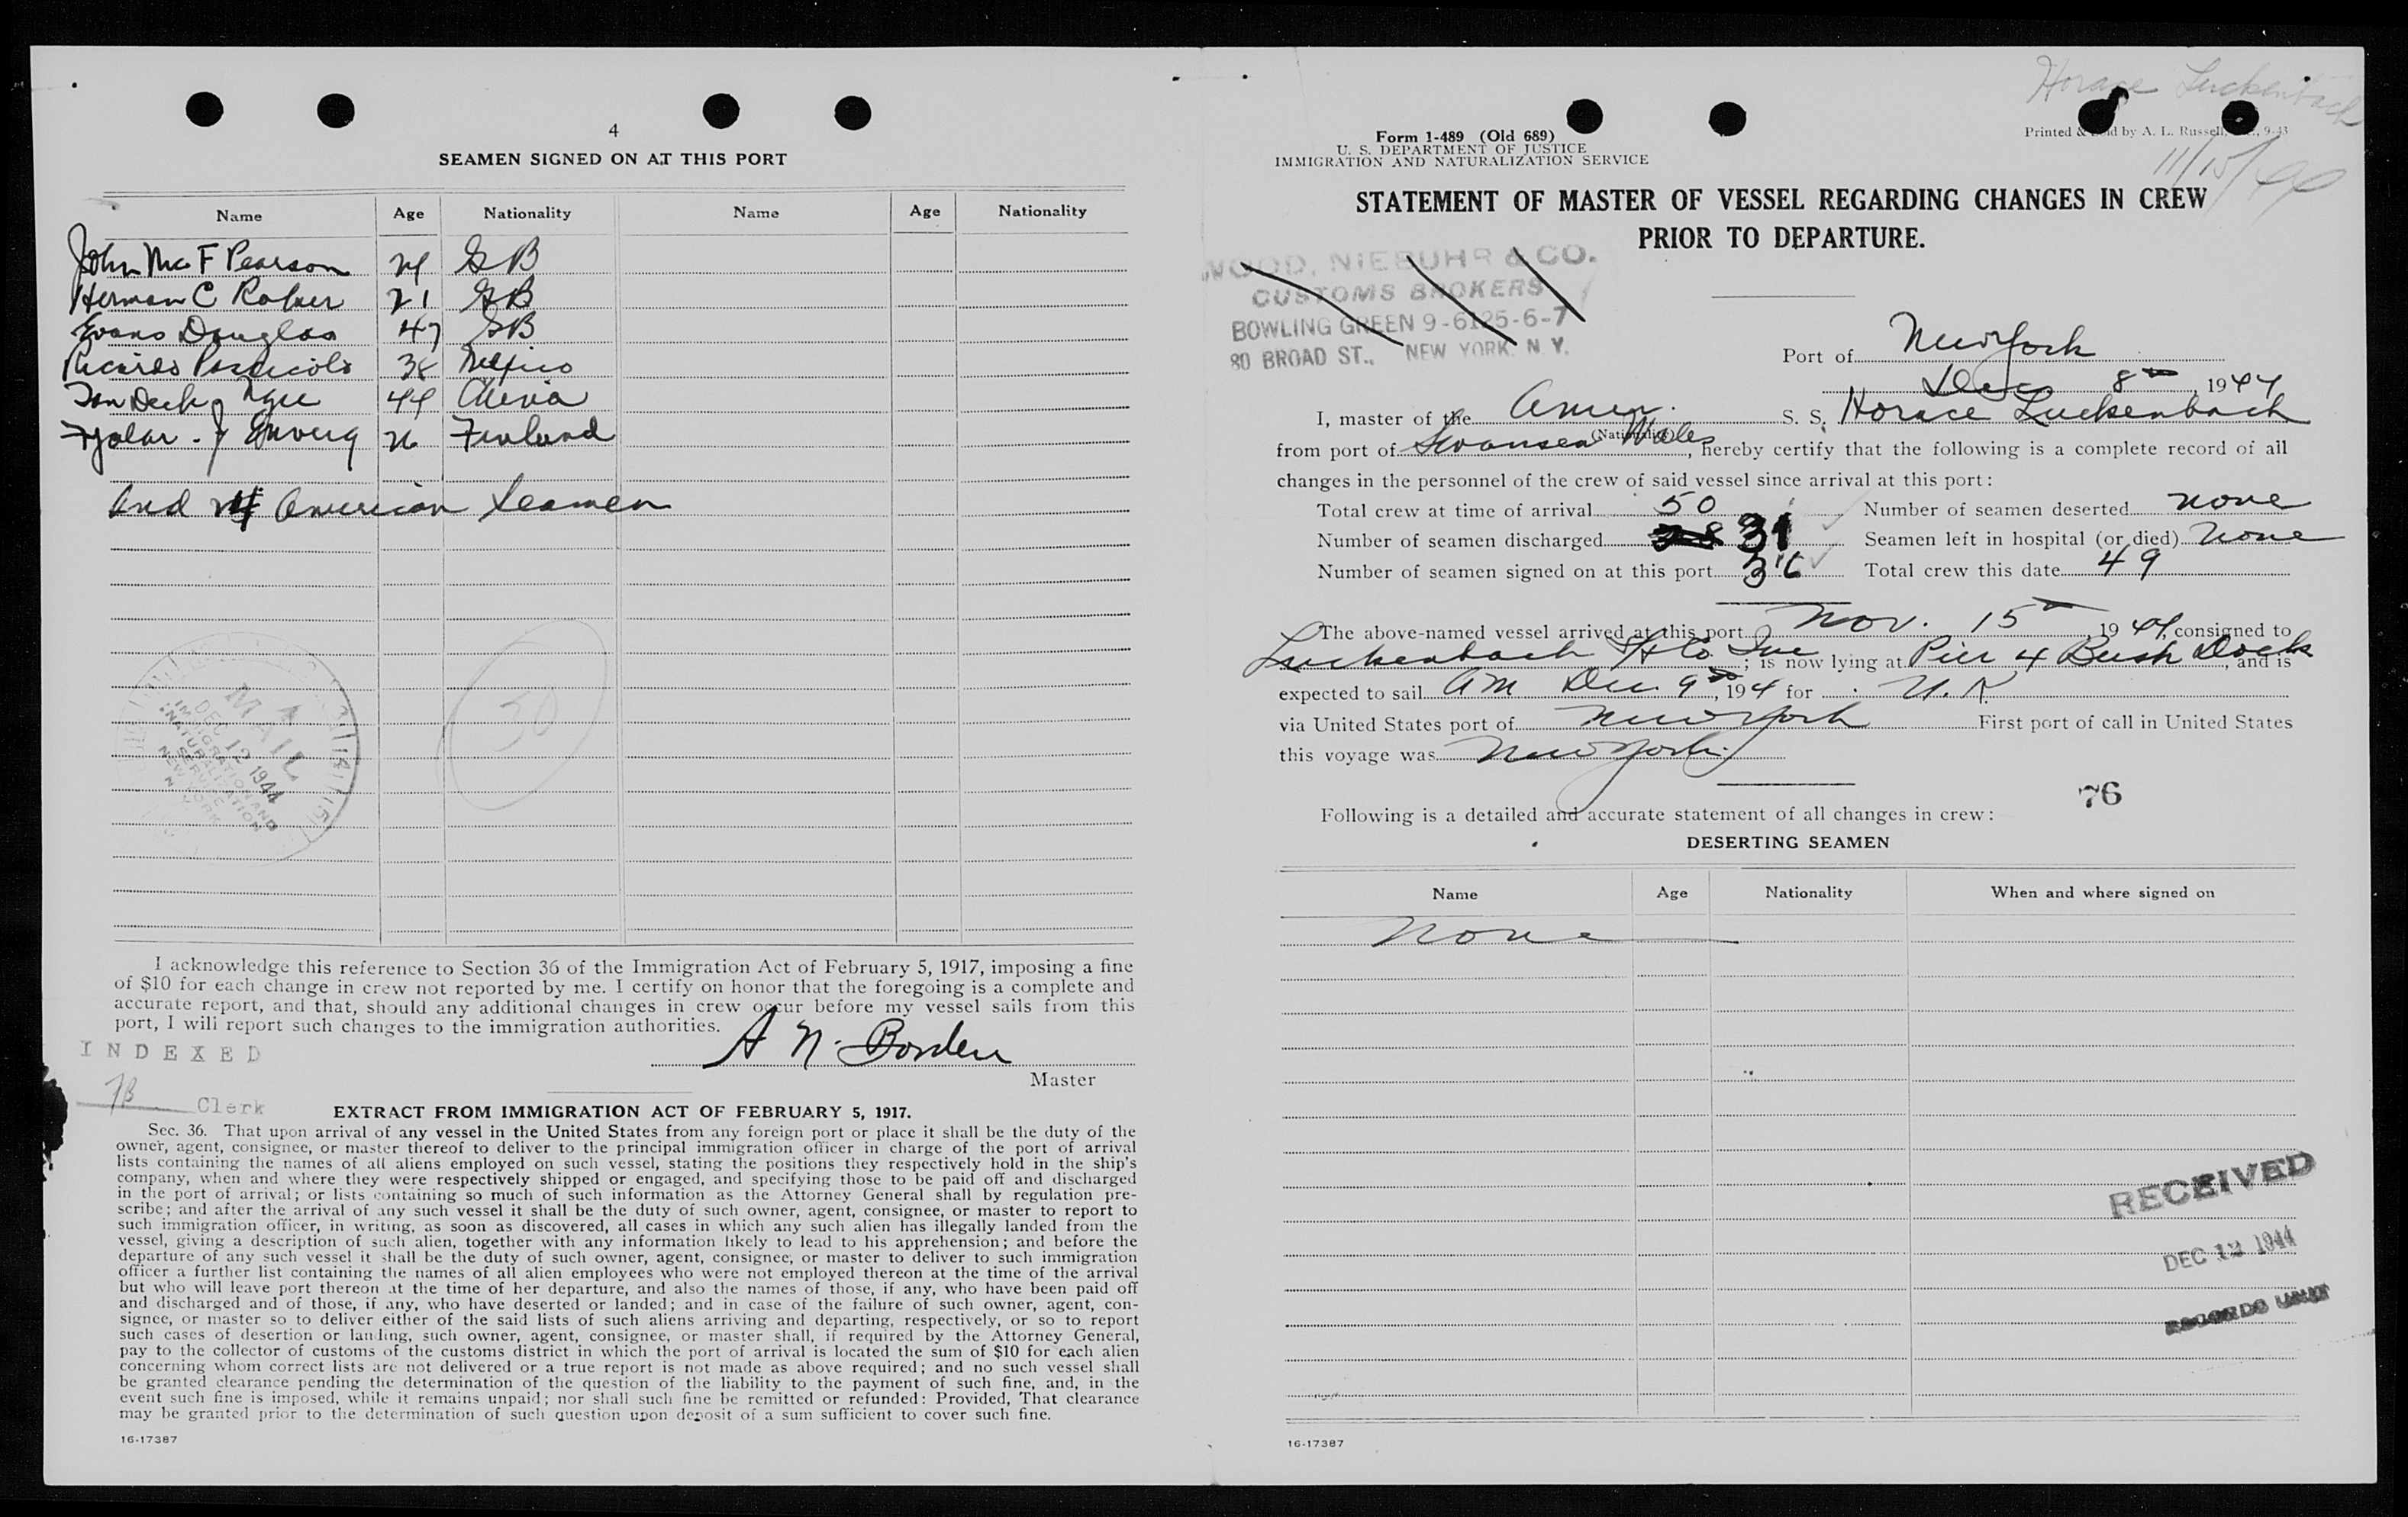 4
SEAMEN SIGNED ON AT THIS PORT
Name Age Nationality Name Age Nationality
John Mc F Pearson 24 GB
Herman C 21 GB
Evans Douglas 47 GB
Ricardo 38 Mexico
44 China
26 Finland
and American Seamen
30
A
MAIL
DEC 12 1944
IMMIGRATION AND
NATURALIZATION
SERVICE
NEW YORK
N. Y.
I acknowledge this reference to Section 36 of the Immigration Act of February 5, 1917, imposing a fine
of $10 for each change in crew not reported by me. I certify on honor that the foregoing is a complete and
accurate report, and that, should any additional changes in crew occur before my vessel sails from this
port, I will report such changes to the immigration authorities.
A N. Borden
INDEXED
Master
Clerk
EXTRACT FROM IMMIGRATION ACT OF FEBRUARY 5, 1917.
Sec. 36. That upon arrival of any vessel in the United States from any foreign port or place it shall be the duty of the
owner, agent, consignee, or master thereof to deliver to the principal immigration officer in charge of the port of arrival
lists containing the names of all aliens employed on such vessel, stating the positions they respectively hold in the ship's
company, when and where they were respectively shipped or engaged, and specifying those to be paid off and discharged
in the port of arrival; or lists containing so much of such information as the Attorney General shall by regulation pre-
scribe; and after the arrival of any such vessel it shall be the duty of such owner, agent, consignee, or master to report to
such immigration officer, in writing, as soon as discovered, all cases in which any such alien has illegally landed from the
vessel, giving a description of such alien, together with any information likely to lead to his apprehension; and before the
departure of any such vessel it shall be the duty of such owner, agent, consignee, or master to deliver to such immigration
officer a further list containing the names of all alien employees who were not employed thereon at the time of the arrival
but who will leave port thereon at the time of her departure, and also the names of those, if any, who have been paid off
and discharged and of those, if any, who have deserted or landed; and in case of the failure of such owner, agent, con-
signee, or master so to deliver either of the said lists of such aliens arriving and departing, respectively, or so to report
such cases of desertion or landing, such owner, agent, consignee, or master shall, if required by the Attorney General,
pay to the collector of customs of the customs district in which the port of arrival is located the sum of $10 for each alien
concerning whom correct lists are not delivered or a true report is not made as above required; and no such vessel shall
be granted clearance pending the determination of the question of the liability to the payment of such fine, and, in the
event such fine is imposed, while it remains unpaid; nor shall such fine be remitted or refunded: Provided, That clearance
may be granted prior to the determination of such question upon deposit of a sum sufficient to cover such fine.
16-17387
Horace Luckenbach
Form 1-489 (Old 689)
Printed & Sold by A. L. Russell, 9-43
U. S. DEPARTMENT OF JUSTICE
IMMIGRATION AND NATURALIZATION SERVICE
11/15/44
STATEMENT OF MASTER OF VESSEL REGARDING CHANGES IN CREW
PRIOR TO DEPARTURE.
WOOD, NIEBUHR & CO.
CUSTOMS BROKERS
BOWLING GREEN 9-6125-6-7
80 BROAD ST., NEW YORK, N. Y.
Port of New York
Dec 8th, 1944
I, master of the Amer. S. S. Horace Luckenbach
(Nationality)
from port of Swansea Wales, hereby certify that the following is a complete record of all
changes in the personnel of the crew of said vessel since arrival at this port:
Total crew at time of arrival 50 Number of seamen deserted none
Number of seamen discharged 31 Seamen left in hospital (or died) none
Number of seamen signed on at this port 30 Total crew this date 49
The above-named vessel arrived at this port Nov. 15th 1944, consigned to
Luckenbach SS Co Inc; is now lying at Pier 4 Bush Docks, and is
expected to sail AM Dec. 9th, 194 for U. K.
via United States port of New York First port of call in United States
this voyage was New York
76
Following is a detailed and accurate statement of all changes in crew:
DESERTING SEAMEN
Name Age Nationality When and where signed on
None
RECEIVED
DEC 12 1944
RECORDS UNIT
16-17387